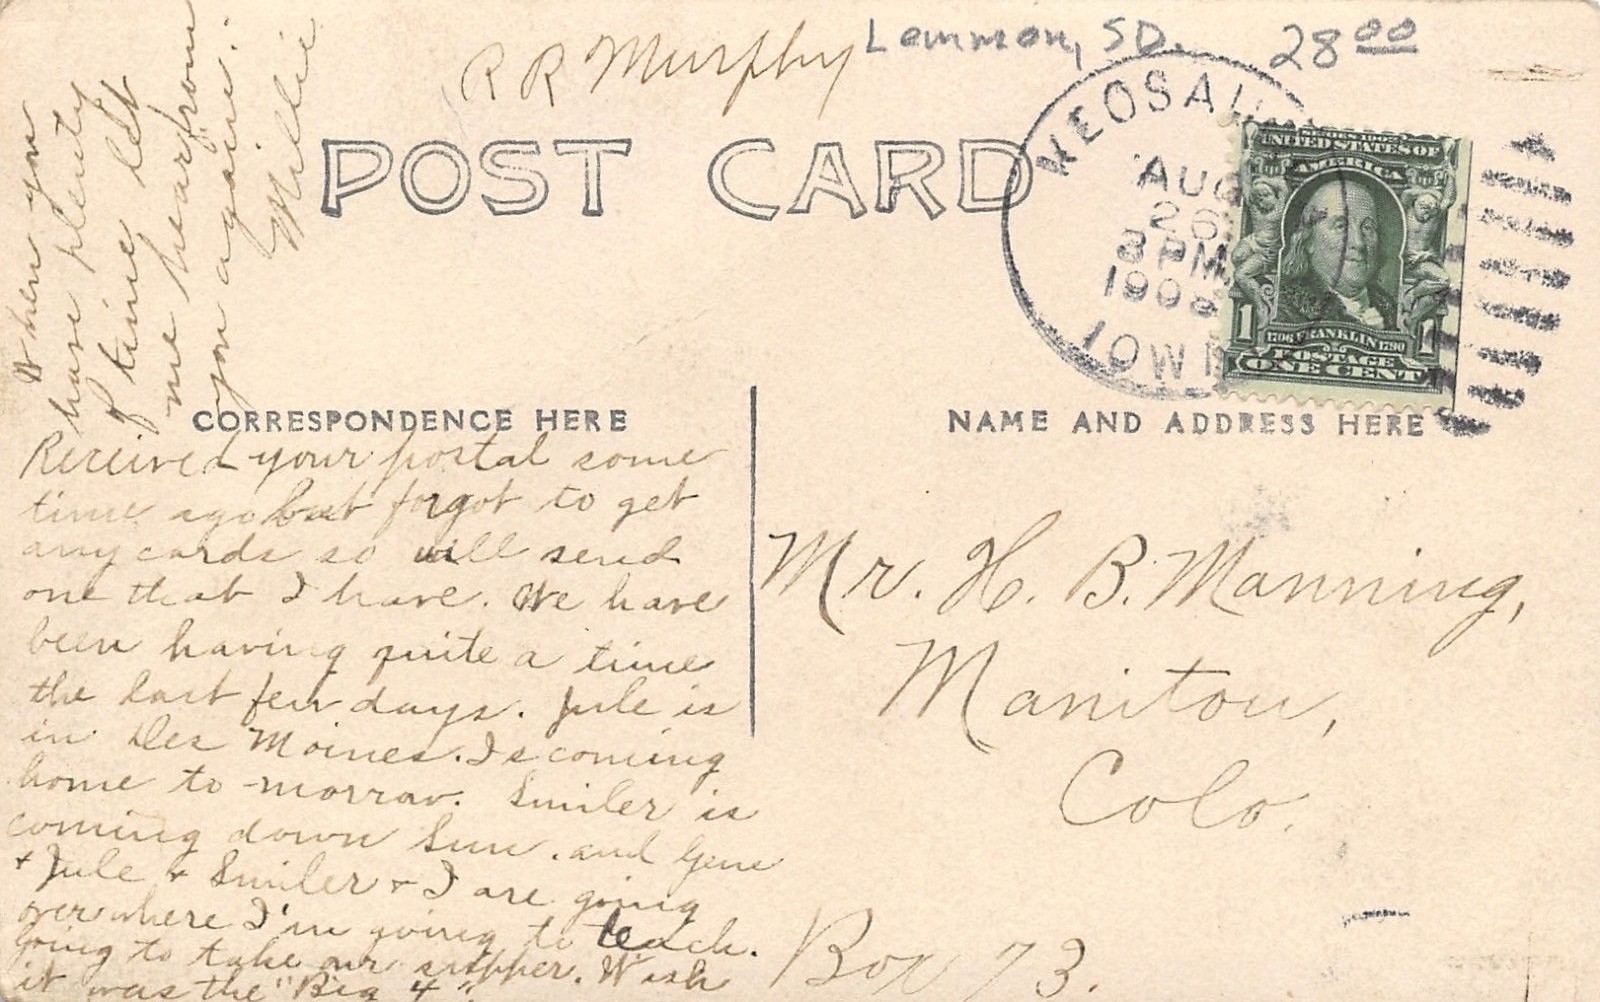 R R Murphy
Lemmon, SD.
28 00
POST CARD
KEOSAU
AUG
26
8 PM
1908
IOWA
SERIES 1902
UNITED STATES OF
AMERICA
1 1
1706 FRANKLIN 1790
POSTAGE
ONE CENT
CORRESPONDENCE HERE
NAME AND ADDRESS HERE
Received your postal some
time ago but forgot to get
any cards so will send
one that I have. We have
been having quite a time
the last few days. Jule is
in Des Moines. Is coming
home to-morrow. Smiler is
coming down Sun. and Gene
+ Jule + Smiler + I are going
over where I'm going to teach.
Going to take our supper. Wish
it was the "Big 4".
When you
have plenty
of time let
me hear from
you again.
Millie
Mr. H. B. Manning,
Manitou,
Colo.
Box 73.